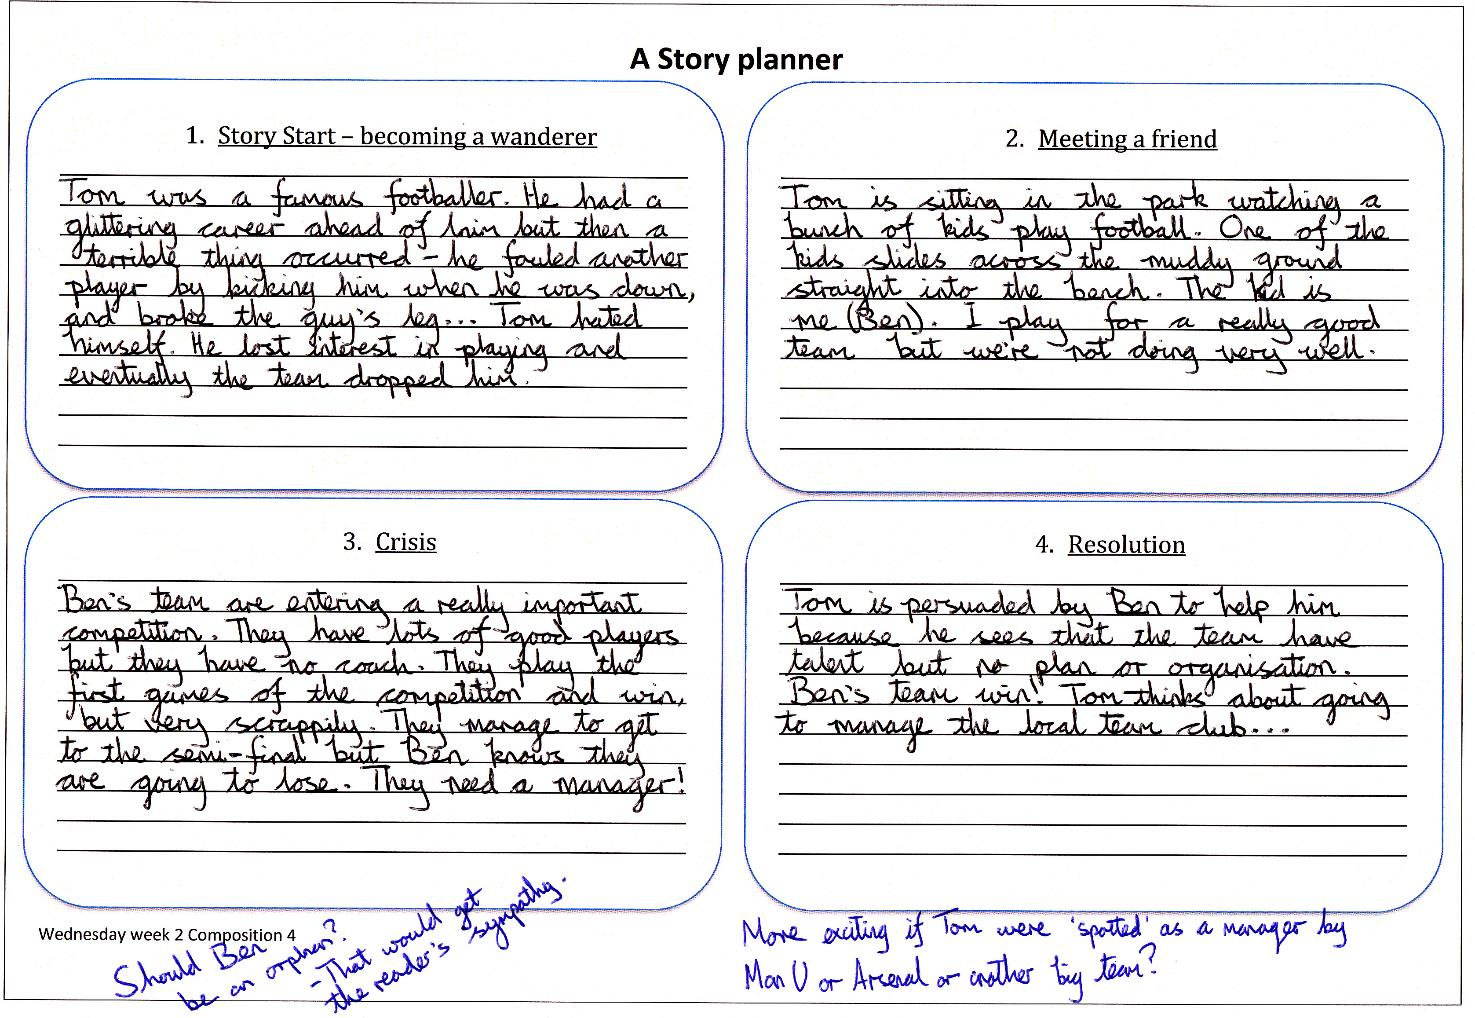 A Story planner
1. Story Start – becoming a wanderer
Tom was a famous footballer. He had a
glittering career ahead of him but then a
terrible thing occurred – he fouled another
player by kicking him when he was down,
and broke the guy's leg... Tom hated
himself. He lost interest in playing and
eventually the team dropped him.
2. Meeting a friend
Tom is sitting in the park watching a
bunch of kids play football. One of the
kids slides across the muddy ground
straight into the bench. The kid is
me (Ben). I play for a really good
team but we're not doing very well.
3. Crisis
Ben's team are entering a really important
competition. They have lots of good players
but they have no coach. They play the
first games of the competition and win,
but very scrappily. They manage to get
to the semi-final but Ben knows they
are going to lose. They need a manager!
4. Resolution
Tom is persuaded by Ben to help him
because he sees that the team have
talent but no plan or organisation.
Ben's team win! Tom thinks about going
to manage the local team club...
Wednesday week 2 Composition 4
Should Ben
be an orphan?
- That would get
the reader's sympathy.
More exciting if Tom were 'spotted' as a manager by
Man U or Arsenal or another big team?